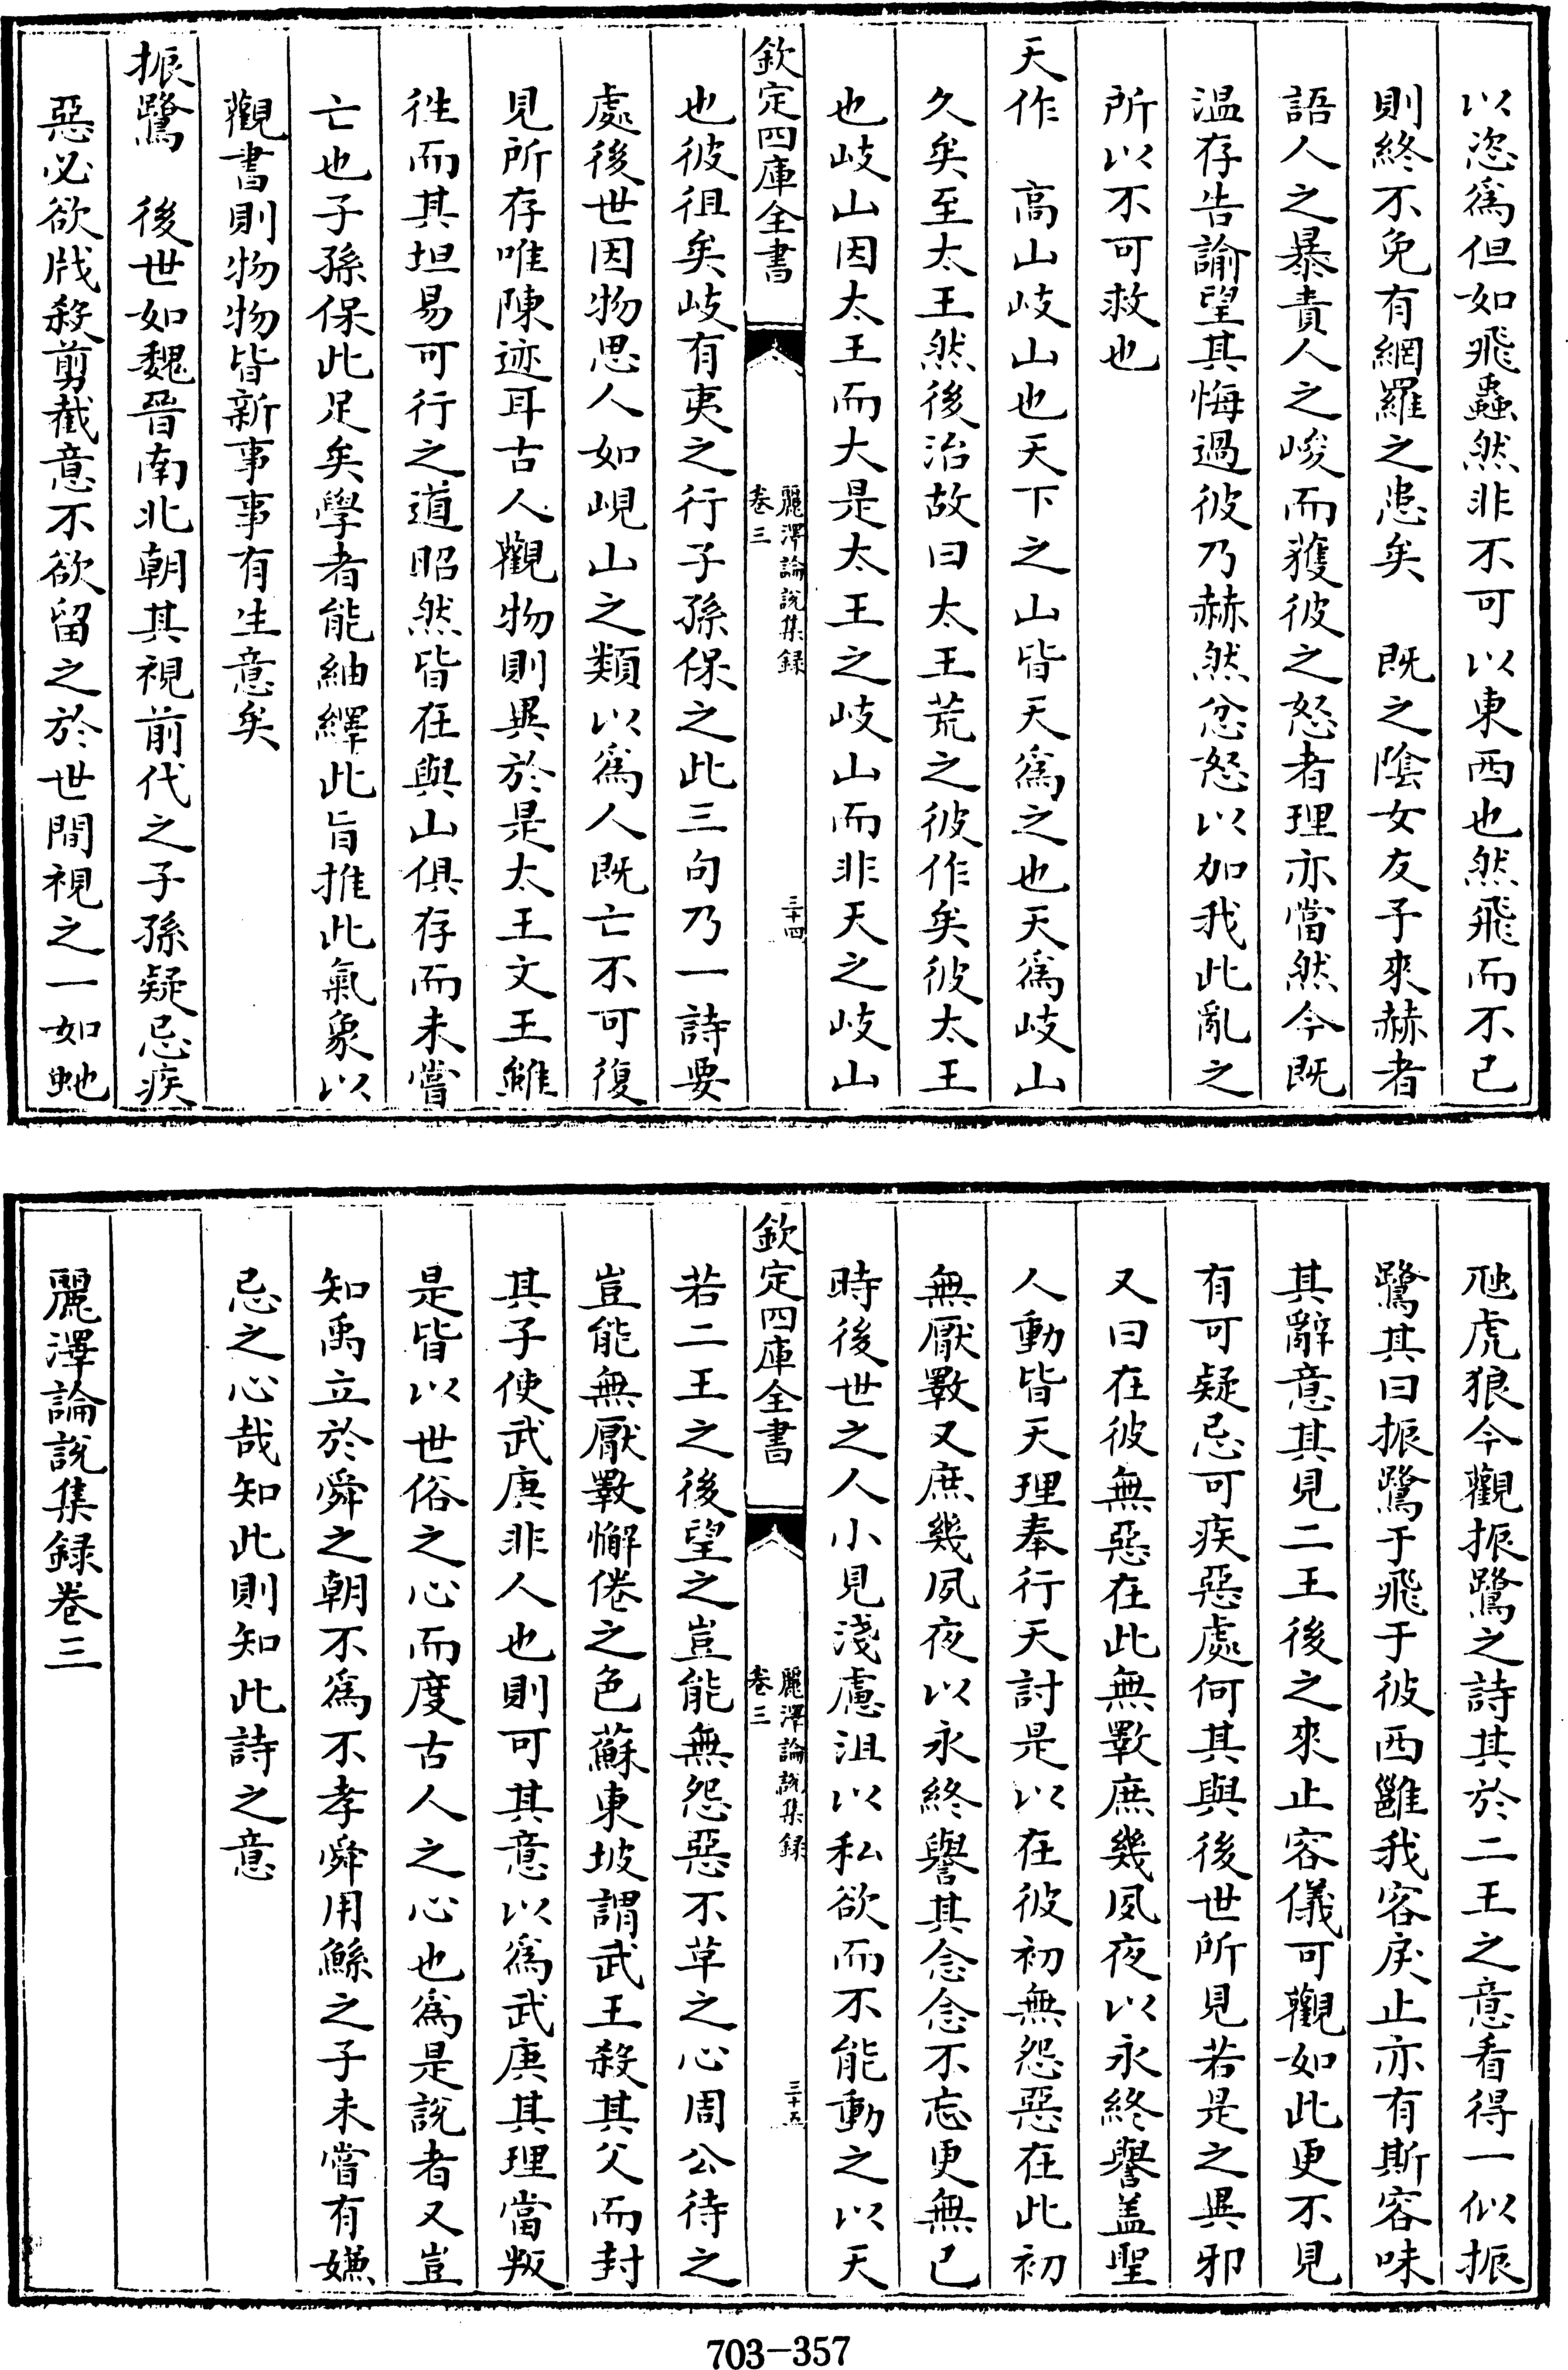 以恣爲但如飛蟲然非不可以東西也然飛而不已
則終不免有網羅之患矣　既之隂女友予來赫者
語人之暴責人之峻而獲彼之怒者理亦當然今既
温存告諭望其悔過彼乃赫然忿怒以加我此亂之
所以不可救也
天作　高山岐山也天下之山皆天爲之也天爲岐山
久矣至太王然後治故曰太王荒之彼作矣彼太王
也岐山因太王而大是太王之岐山而非天之岐山
欽定四庫全書
麗澤論説集録
卷三
三十四
也彼徂矣岐有夷之行子孫保之此三句乃一詩要
處後世因物思人如峴山之類以爲人既亡不可復
見所存唯陳迹耳古人觀物則異於是太王文王雖
徃而其坦易可行之道昭然皆在與山俱存而未嘗
亡也子孫保此足矣學者能紬繹此旨推此氣象以
觀書則物物皆新事事有生意矣
振鷺　後世如魏晉南北朝其視前代之子孫疑忌疾
惡必欲戕殺剪截意不欲留之於世間視之一如虵
虺虎狼今觀振鷺之詩其於二王之意看得一似振
鷺其曰振鷺于飛于彼西雝我客戾止亦有斯容味
其辭意其見二王後之來止容儀可觀如此更不見
有可疑忌可疾惡處何其與後世所見若是之異邪
又曰在彼無惡在此無斁庶幾夙夜以永終譽蓋聖
人動皆天理奉行天討是以在彼初無怨惡在此初
無厭斁又庶幾夙夜以永終譽其念念不忘更無已
時後世之人小見淺慮沮以私欲而不能動之以天
欽定四庫全書
麗澤論説集録
卷三
三十五
若二王之後望之豈能無怨惡不草之心周公待之
豈能無厭斁懈倦之色蘇東坡謂武王殺其父而封
其子使武庚非人也則可其意以爲武庚其理當叛
是皆以世俗之心而度古人之心也爲是説者又豈
知禹立於舜之朝不爲不孝舜用鯀之子未嘗有嫌
忌之心哉知此則知此詩之意
麗澤論説集録卷三
703-357